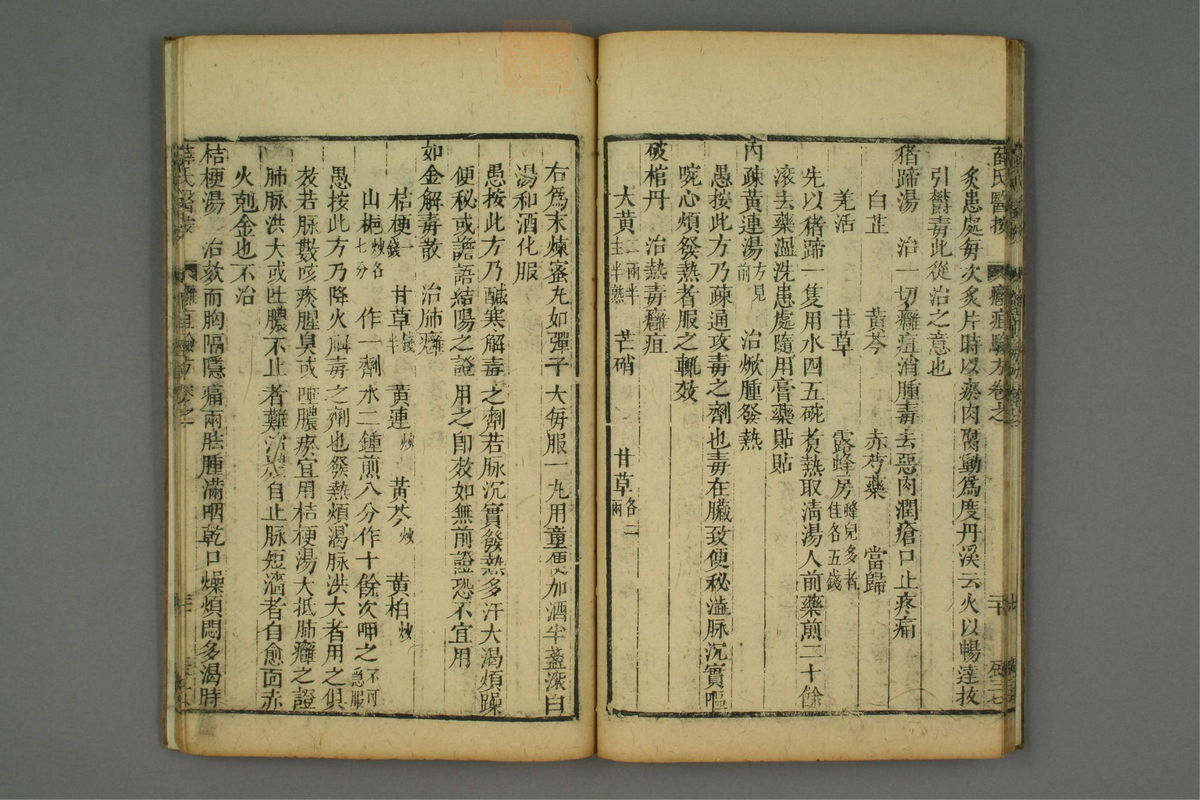 薛氏醫按 癰疽驗方卷之一
灸患處每次灸片時以瘀肉腐動爲度丹溪云火以暢達拔
引欝毒此從治之意也
猪蹄湯 治一切癰疽消腫毒去惡肉潤瘡口止疼痛
白芷 黃芩 赤芍藥 當歸
羗活 甘草 露蜂房蜂兒多者佳各五錢
先以猪蹄一隻用水四五碗煮熟取淸湯人前藥煎二十餘
滚去藥溫洗患處隨用膏藥貼貼
內疎黃連湯方見前 治焮腫發熱
愚按此方乃疎通攻毒之劑也毒在臟致便秘澁脉沉實嘔
啘心煩發熱者服之輒效
破棺丹 治熱毒癰疽
大黃二兩半半熟 芒硝 甘草各二兩
右爲末煉蜜丸如彈子大每服一丸用童便加酒半盞滚白
湯和酒化服
愚按此方乃醎寒解毒之劑若脉沉實發熱多汗大渴煩躁
便秘或譫語結陽之證用之卽效如無前證恐不宜用
如金解毒散 治肺癰
桔梗一錢 甘草錢半 黃連炒 黃芩炒 黃柏炒
山梔炒各七分 作一劑水二鍾煎八分作十餘次呷之不可急服
愚按此方乃降火解毒之劑也發熱煩渴脉洪大者用之俱
效若脉數咳痰腥臭或唾膿瘀宜用桔梗湯大抵肺癰之證
肺脉洪大或吐膿不止者難治膿自止脉短濇者自愈面赤
火剋金也不治
桔梗湯 治欬而胸隔隱痛兩胠腫滿咽乾口燥煩悶多渴時
薛氏醫按